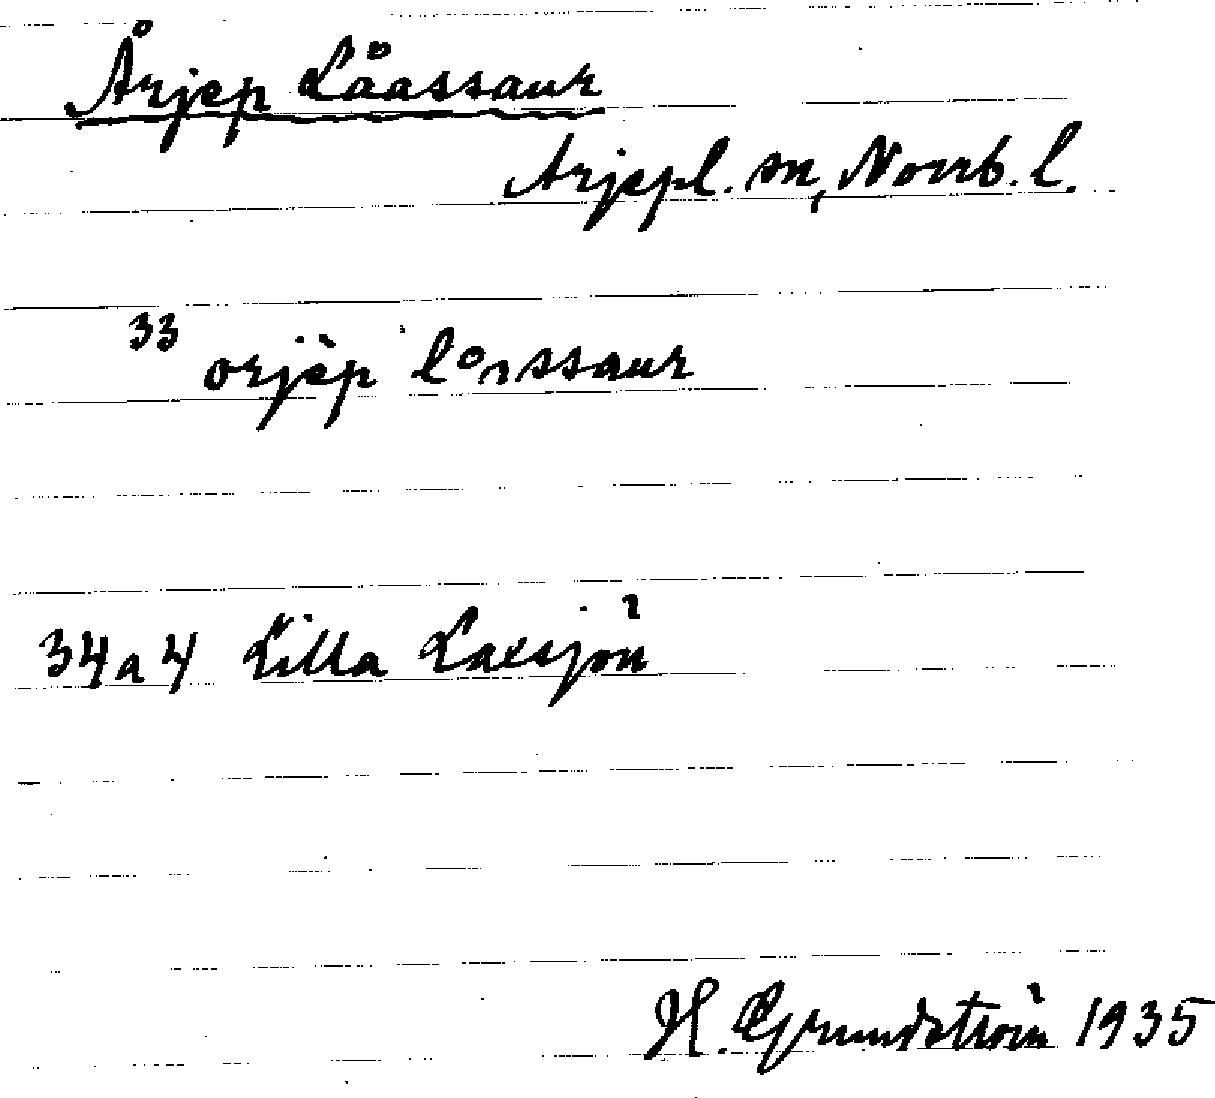 Årjep Låassaur
Arjepl. sn, Norrb. l.
33 orjèp
34a4 Lilla Laxsjön
H. Grundström 1935